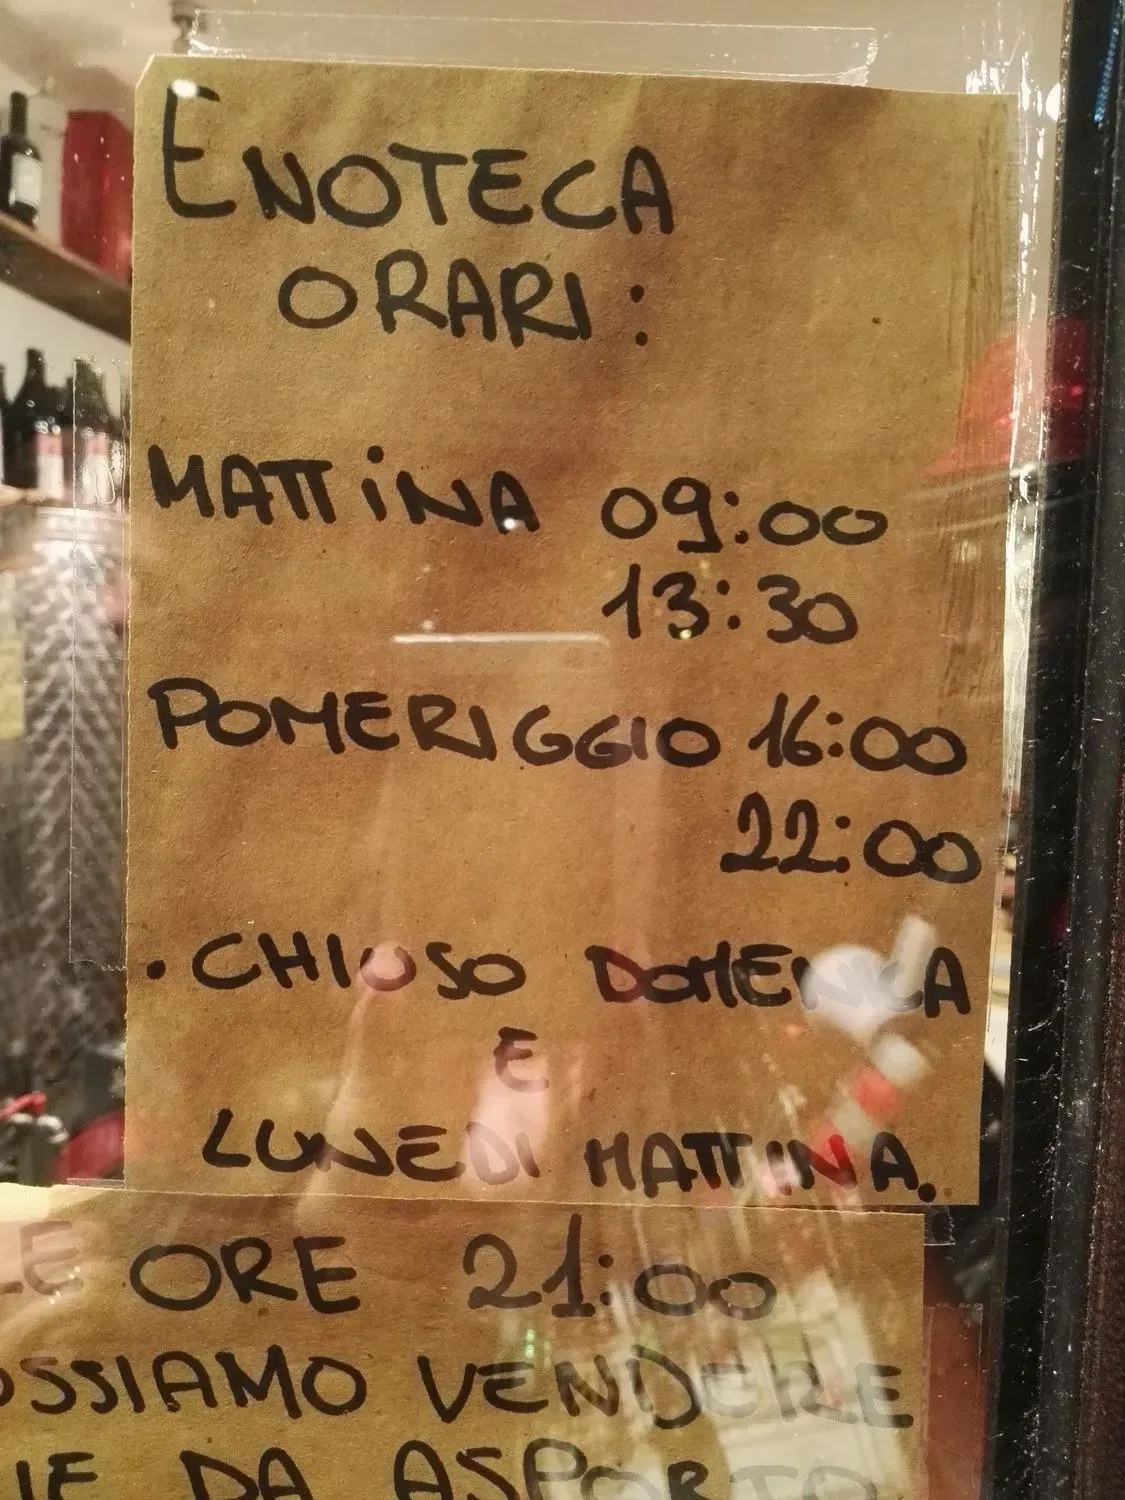 ENOTECA
ORARI:
MATTiNA 09:00
13:30
POMERIGGIO 16:00
22:00
. CHIUSO DOMENICA
E
LUNEDI MATTINA.
LE ORE 21:00
OSSIAMO VENDERE
IE DA ASPORTO